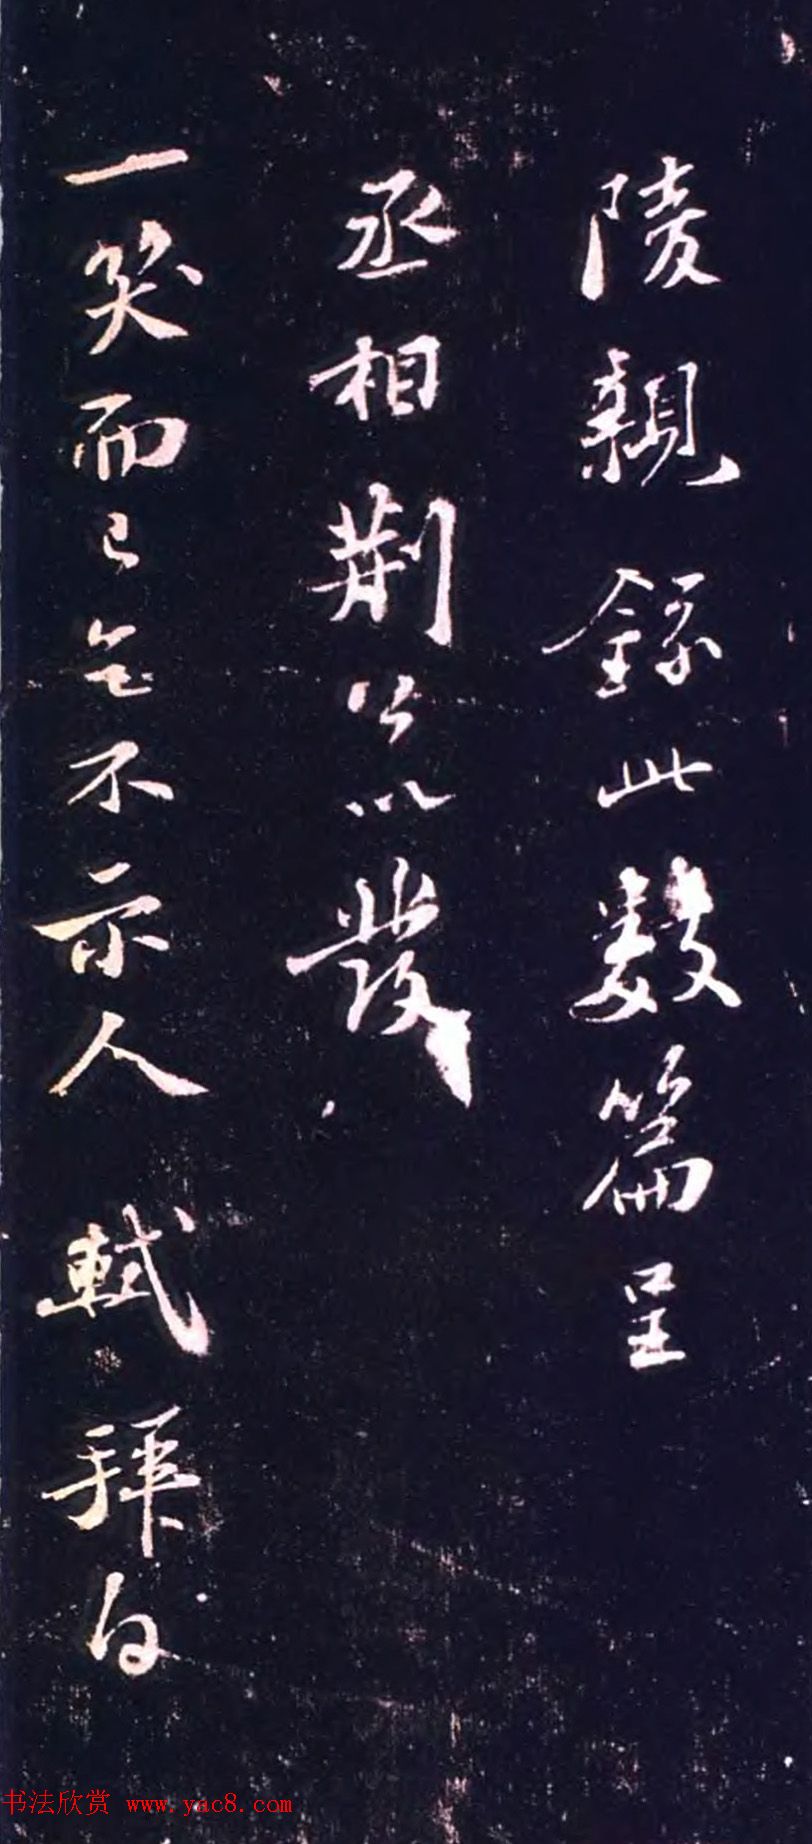 陵親錄此數篇呈
丞相荊公以發
一笑而已乞不示人 軾拜白
书法欣赏 www.yac8.com